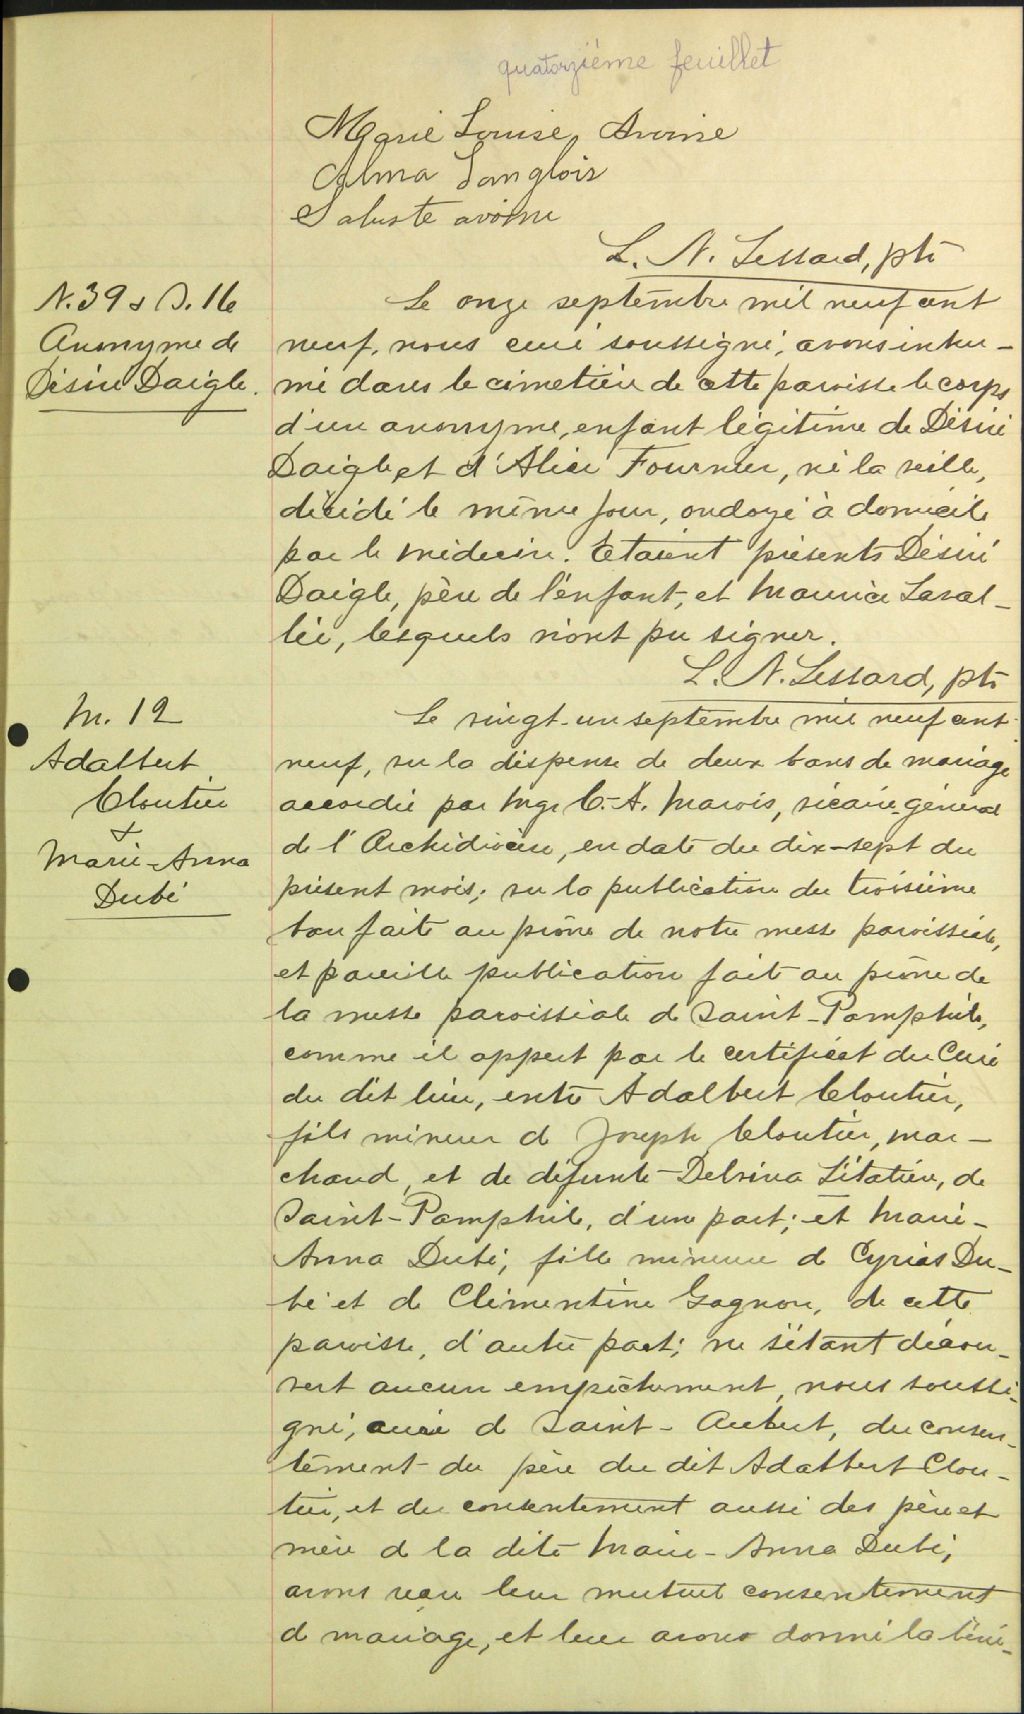 quatorzième feuillet
Marie Louise Avoine
Alma Langlois
Saluste avoine
L. N. Lessard, ptr
N. 39 & S. 16
Anonyme de
Désiré Daigle.
Le onze septembre mil neuf cent
neuf, nous curé soussigné, avons inhu-
mé dans le cimetière de cette paroisse le corps
d'un anonyme, enfant légitime de Désiré
Daigle et d'Alice Fournier, né la veille,
décédé le même jour, ondoyé à domicile
par le médecin. Etaient présents Désiré
Daigle, père de l'enfant, et Maurice Laval-
lée, lesquels n'ont pu signer.
L. N. Lessard, ptr
M. 12
Adalbert
Cloutier
&
Marie-Anna
Dubé
Le vingt-un septembre mil neuf cent
neuf, vu la dispense de deux bans de mariage
accordée par Mgr C.-A. Marois, vicaire-général
de l'Archidiocèse, en date du dix-sept du
présent mois; vu la publication du troisième
ban faite au prône de notre messe paroissiale,
et pareille publication faite au prône de
la messe paroissiale de Saint-Pamphile,
comme il appert par le certificat du Curé
du dit lieu, entre Adalbert Cloutier,
fils mineur de Joseph Cloutier, mar-
chand, et de défunte Delvina Litalien, de
Saint-Pamphile, d'une part; et Marie-
Anna Dubé, fille mineure de Cyrias Du-
bé et de Clémentine Gagnon, de cette
paroisse, d'autre part; ne s'étant décou-
vert aucun empêchement, nous soussi-
gné, curé de Saint-Aubert, du consen-
tement du père du dit Adalbert Clou-
tier, et du consentement aussi des père et
mère de la dite Marie-Anna Dubé,
avons reçu leur mutuel consentement
de mariage, et leur avons donné la béné-